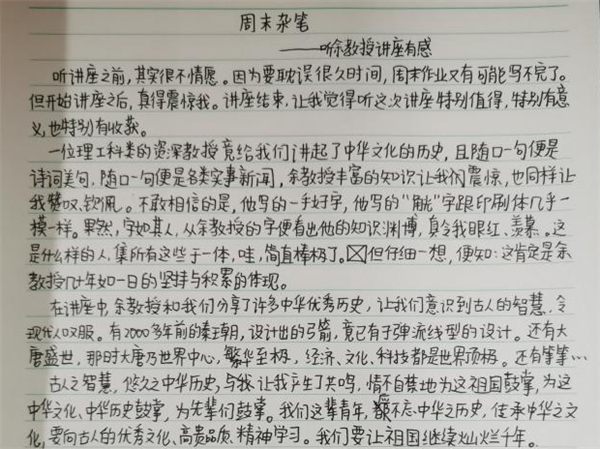 周末杂笔
——听余教授讲座有感
听讲座之前,其实很不情愿。因为要耽误很久时间,周末作业又有可能写不完了。
但开始讲座之后,真得震惊我。讲座结束,让我觉得听这次讲座特别值得,特别有意
义,也特别有收获。
一位理工科类的资深教授竟给我们讲起了中华文化的历史,且随口一句便是
诗词美句,随口一句便是各类实事新闻,余教授丰富的知识让我们震惊,也同样让
我赞叹、钦佩。不敢相信的是,他写的一手好字,他写的“脱”字跟印刷体几乎一
模一样。果然,字如其人,从余教授的字便看出他的知识渊博,真令我眼红、羡慕。这
是什么样的人,集所有这些于一体,哇,简直棒极了。但仔细一想,便知:这肯定是余
教授几十年如一日的坚持与积累的体现。
在讲座中,余教授和我们分享了许多中华优秀历史,让我们意识到古人的智慧,令
现代人叹服。有2000多年前的秦朝,设计出的弓箭,竟已有子弹流线型的设计。还有大
唐盛世,那时大唐乃世界中心,繁华至极,经济、文化、科技都是世界顶极。还有等等…
古人之智慧,悠久之中华历史,与我让我产生了共鸣,情不自禁地为这祖国鼓掌,为这
中华文化、中华历史鼓掌,为先辈们鼓掌。我们这辈青年,不忘中华之历史,传承中华之文
化,要向古人的优秀文化、高贵品质、精神学习。我们要让祖国继续灿烂千年。